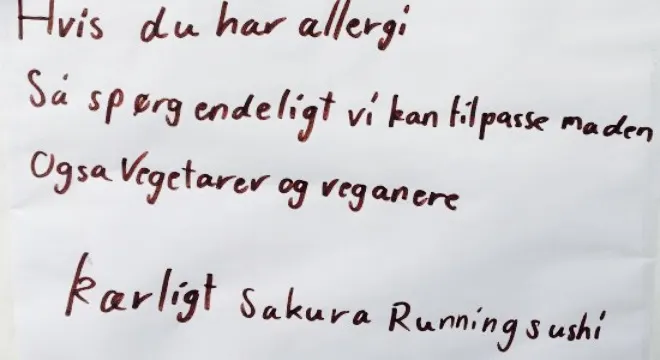 Hvis du har allergi
Så spørg endeligt vi kan tilpasse maden
Også Vegetarer og veganere
kærligt Sakura Running sushi